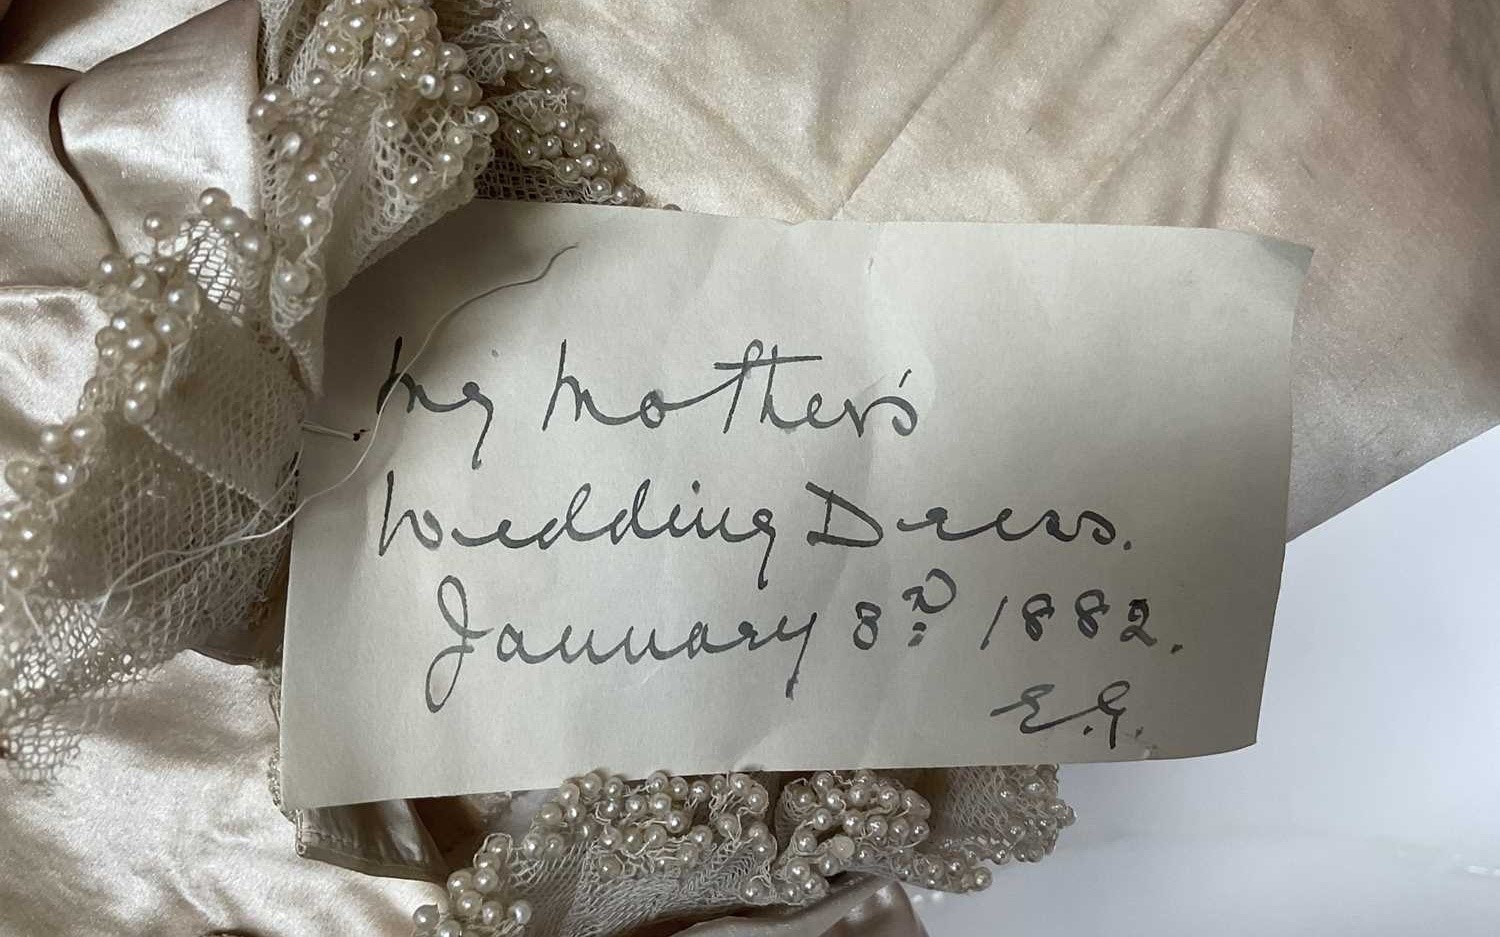 My Mother's
Wedding Dress.
January 3rd 1882.
E.G.